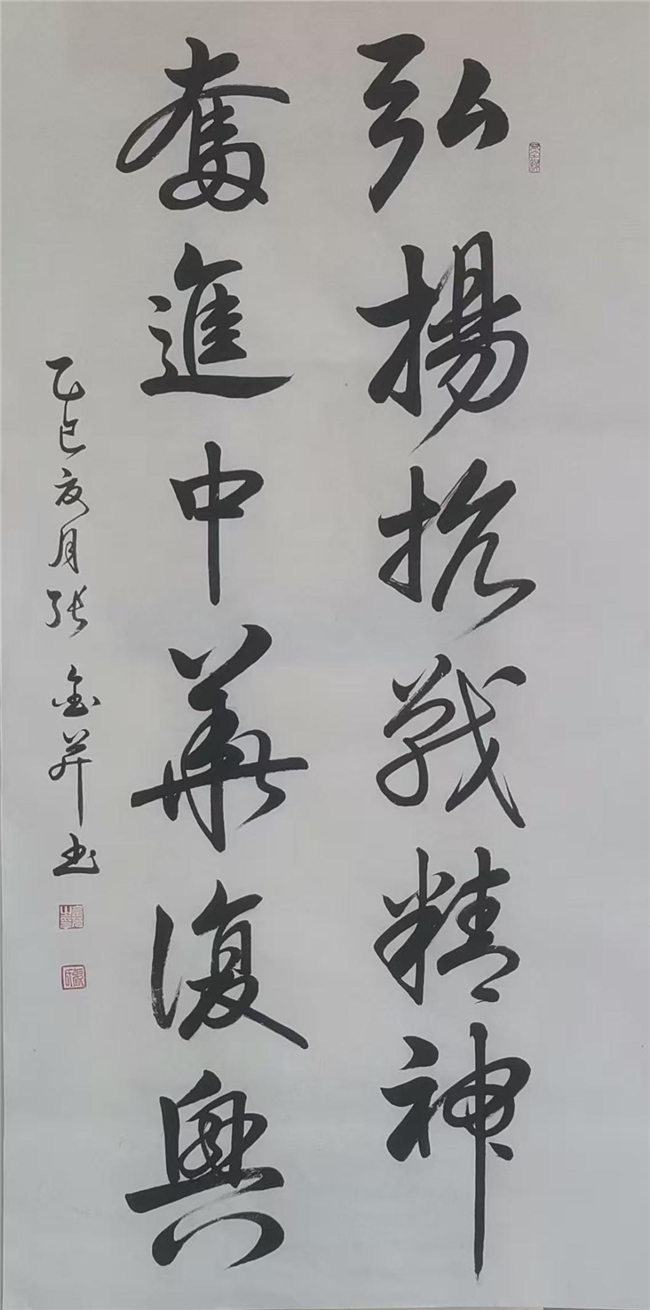 弘揚抗戰精神
奮進中華復興
乙巳夏月張金昇书